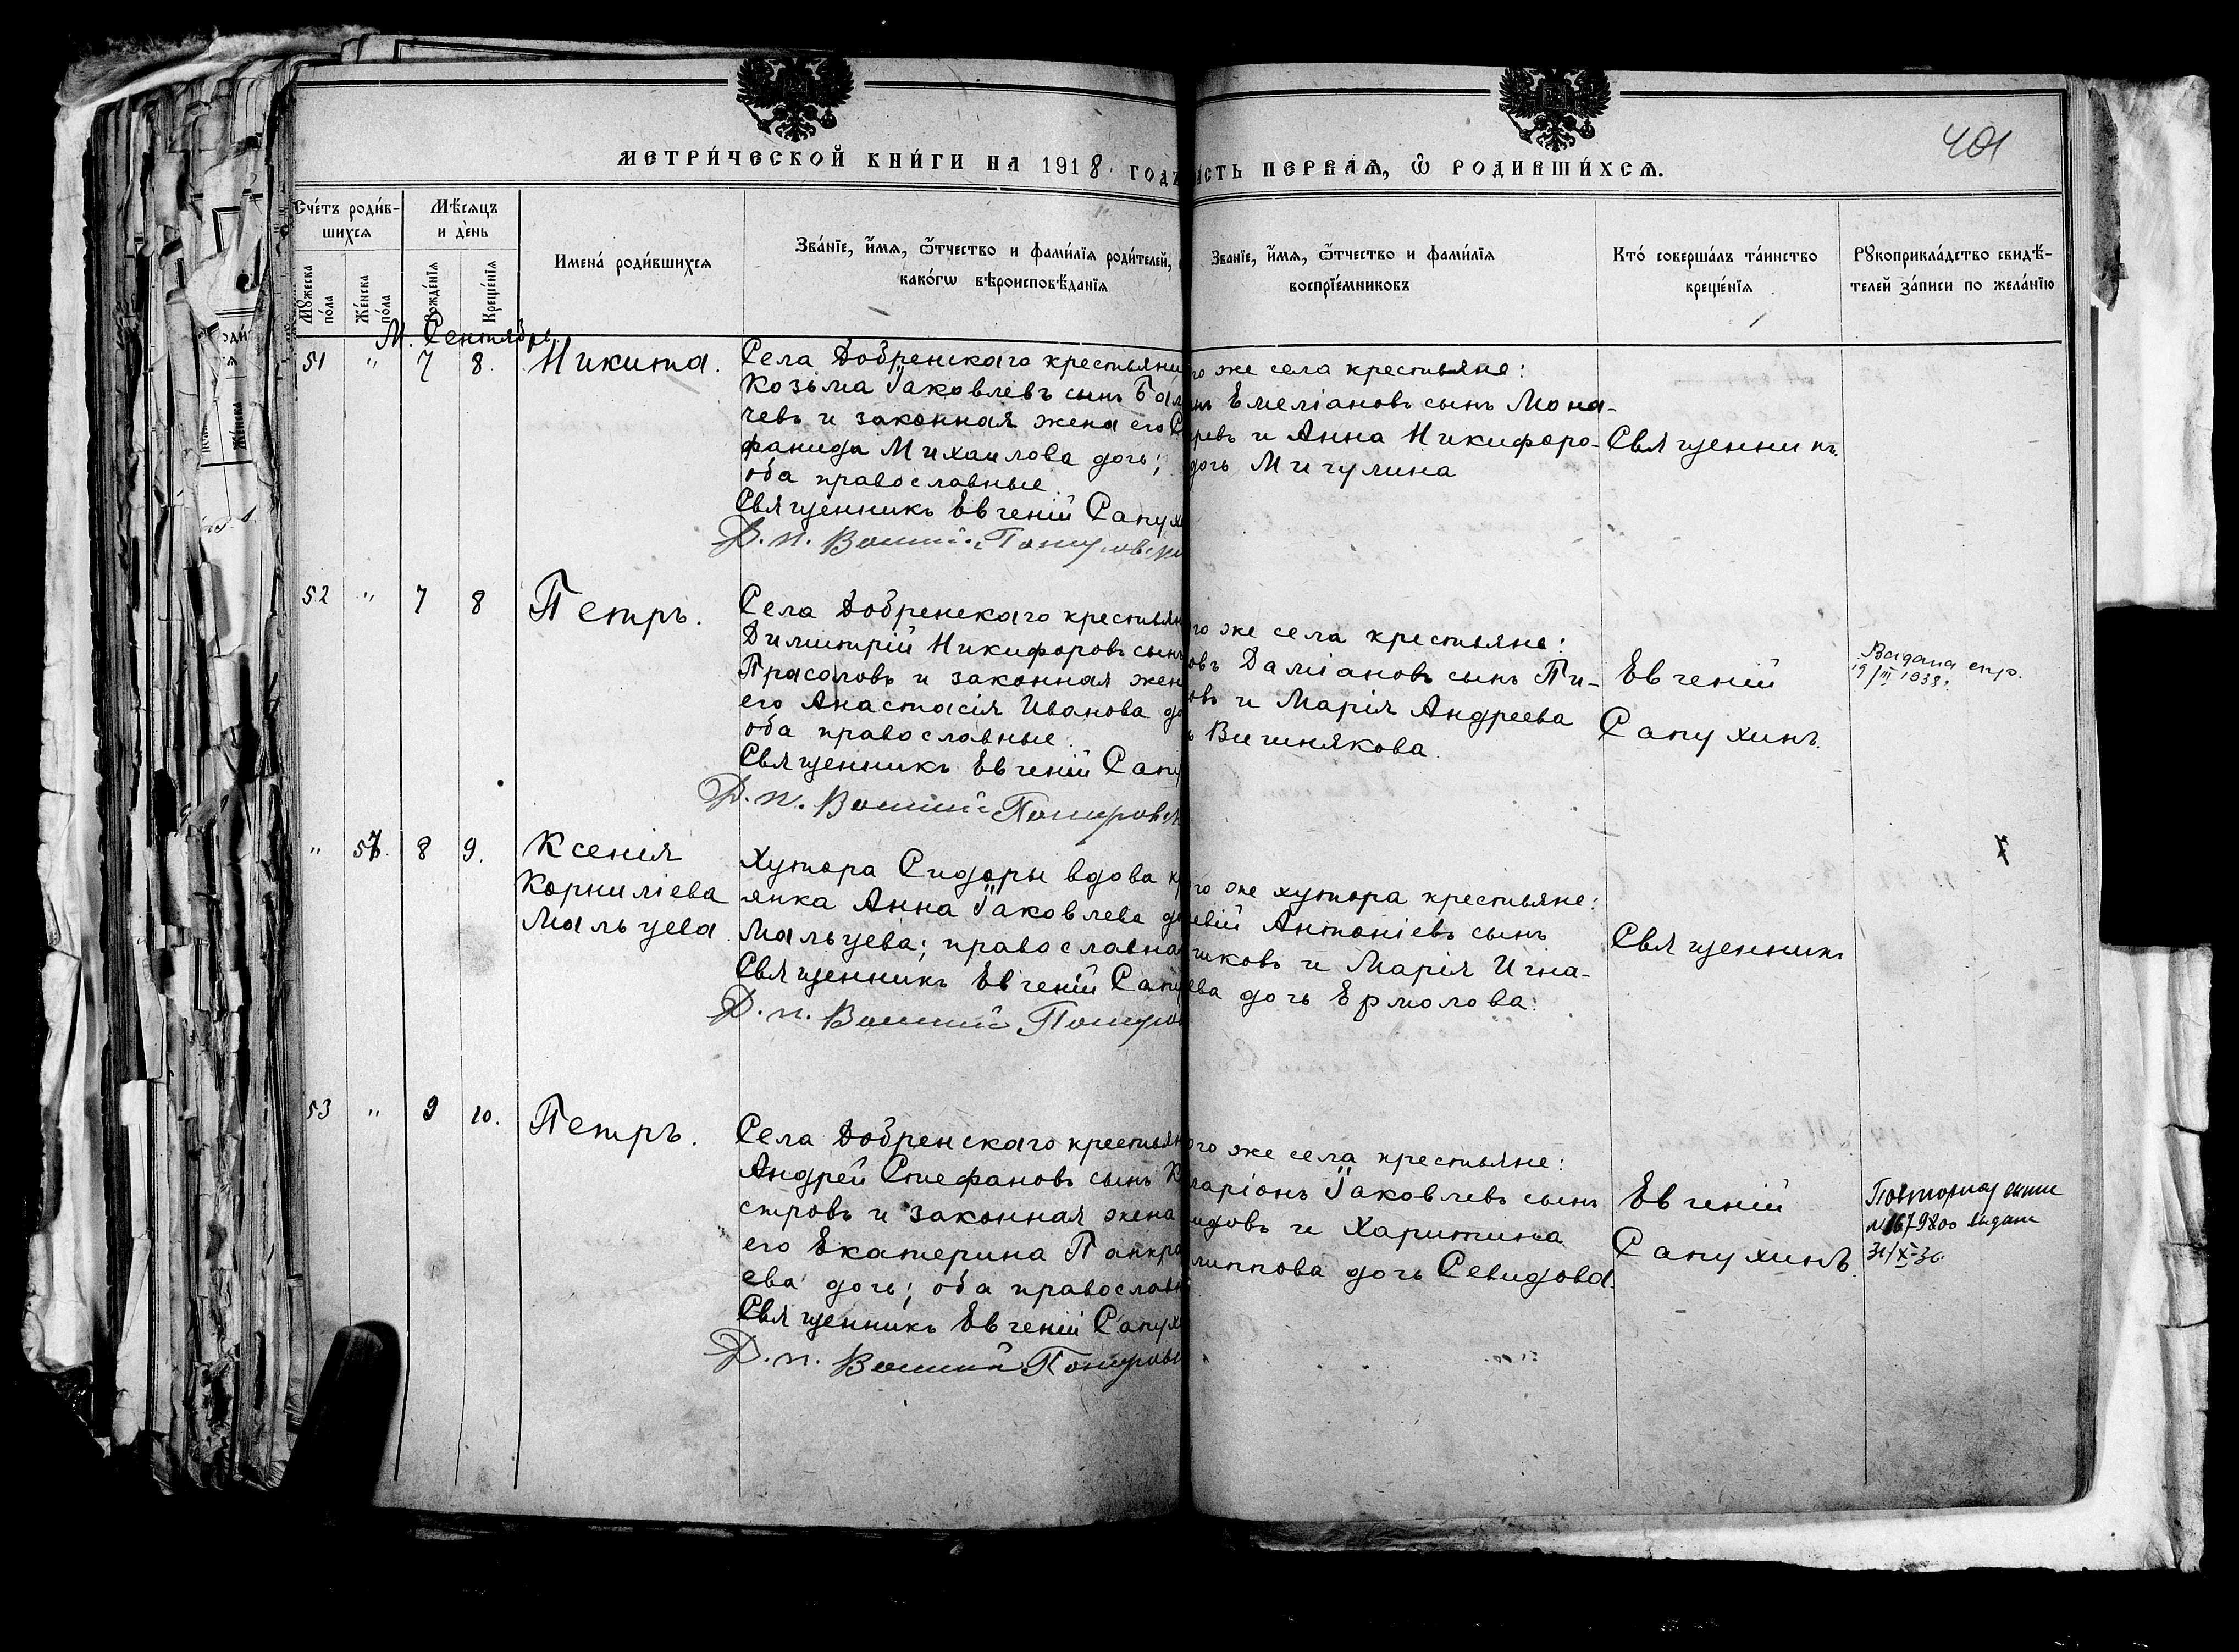 401
МЕТРИ́ЧЕСКОЙ КНИ́ГИ НА 1918 ГОДЪ
ЧА́СТЬ ПЕРВАѦ, Ѿ РОДИВШИ́ХСѦ.
Сче́тъ роди́в-
шихсѧ
Мѣ́сѧцъ
и де́нь
Имена́ роди́вшихсѧ
Зва́нїе, и҆́мѧ, ѻ҆́тчество и фами́лїѧ роди́телей,
како́гѡ вѣроисповѣ́данїѧ
Зва́нїе, и҆́мѧ, ѻ҆́тчество и фами́лїѧ
воспрїе́мниковъ
Кто́ соверша́лъ та́инство
креще́нїѧ
Рꙋкоприкла́дство свидѣ́-
телей за́писи по жела́нїю
Мꙋ́жеска
по́ла
Же́нска
по́ла
Рожде́нїѧ
Креще́нїѧ
М. Сентябрь
51 " 7 8. Никита.
Села Добренскаго крестьяни
Козьма Іаковлевъ сынъ Бал
чевъ и законная жена его С
фанида Михаилова дочь;
оба православные.
Священникъ Евгеній Сапух
Д. п.
го же села крестьяне:
Емеліановъ сынъ Мона-
ревъ и Анна Никифоро-
дочь Мигулина
Священникъ
52 " 7 8 Петръ.
Села Добренскаго крестьян
Димитрій Никифоровъ сынъ
Прасоловъ и законная жен
его Анастасія Иванова до
оба православные.
Священникъ Евгеній Сапу
Д. п.
го же села крестьяне:
овъ Даміановъ сынъ Пи-
овъ и Марія Андреева
ь Вишнякова.
Евгеній
Сапухинъ.
Выдана спр.
19/III 1938г.
" 57. 8 9. Ксенія
Корниліева
Мальцева.
Хутора Сидоры вдова кр
янка Анна Іаковлева до
Мальцева; православна
Священникъ Евгеній Сапу
Д. п.
го же хутора крестьяне:
евій Антоніевъ сынъ
иковъ и Марія Игна-
ева дочь Ермолова.
Священникъ
53 " 9 10. Петръ.
Села Добренскаго крестьян
Андрей Стефановъ сынъ К
стровъ и законная жена
его Екатерина Панкра
ева дочь; оба православн
Священникъ Евгеній Сапух
Д. п.
ого же села крестьяне:
ларіонъ Іаковлевъ сынъ
идовъ и Харитина
липпова дочь Севидова.
Евгеній
Сапухинъ.
Повторное
№ 1679800 выдано
31/X-30